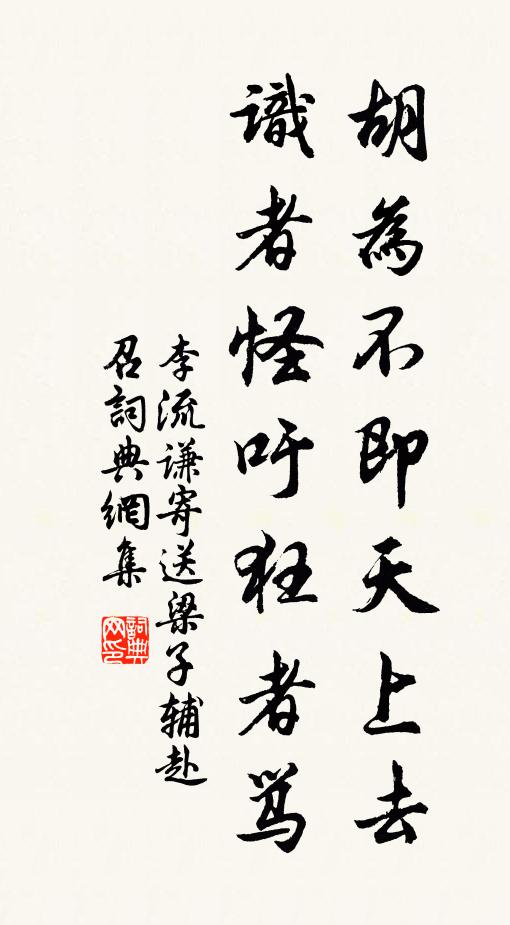 胡為不即天上去
識者怪吁狂者骂
李流谦寄送梁子辅赴
召詞典網集
詞典网印